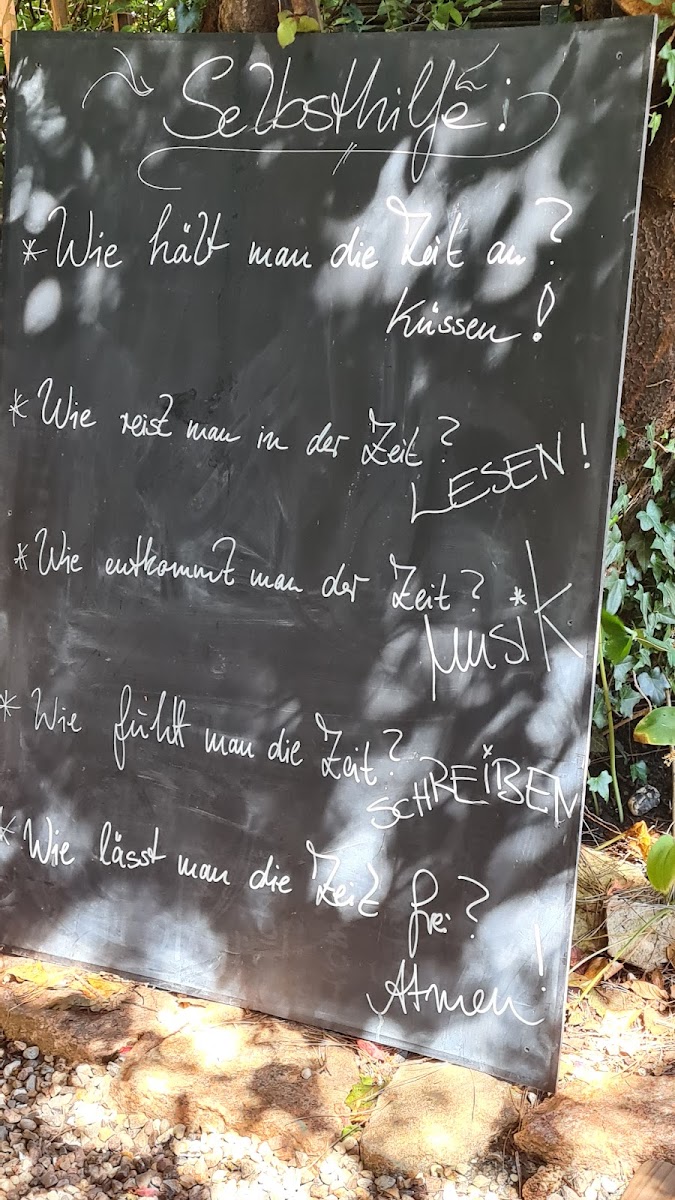 Selbsthilfe:
* Wie hält man die Zeit an?
Küssen!
* Wie reist man in der Zeit?
LESEN!
* Wie entkommt man der Zeit?
MUSIK
* Wie fühlt man die Zeit?
SCHREIBEN
* Wie lässt man die Zeit frei?
Atmen!